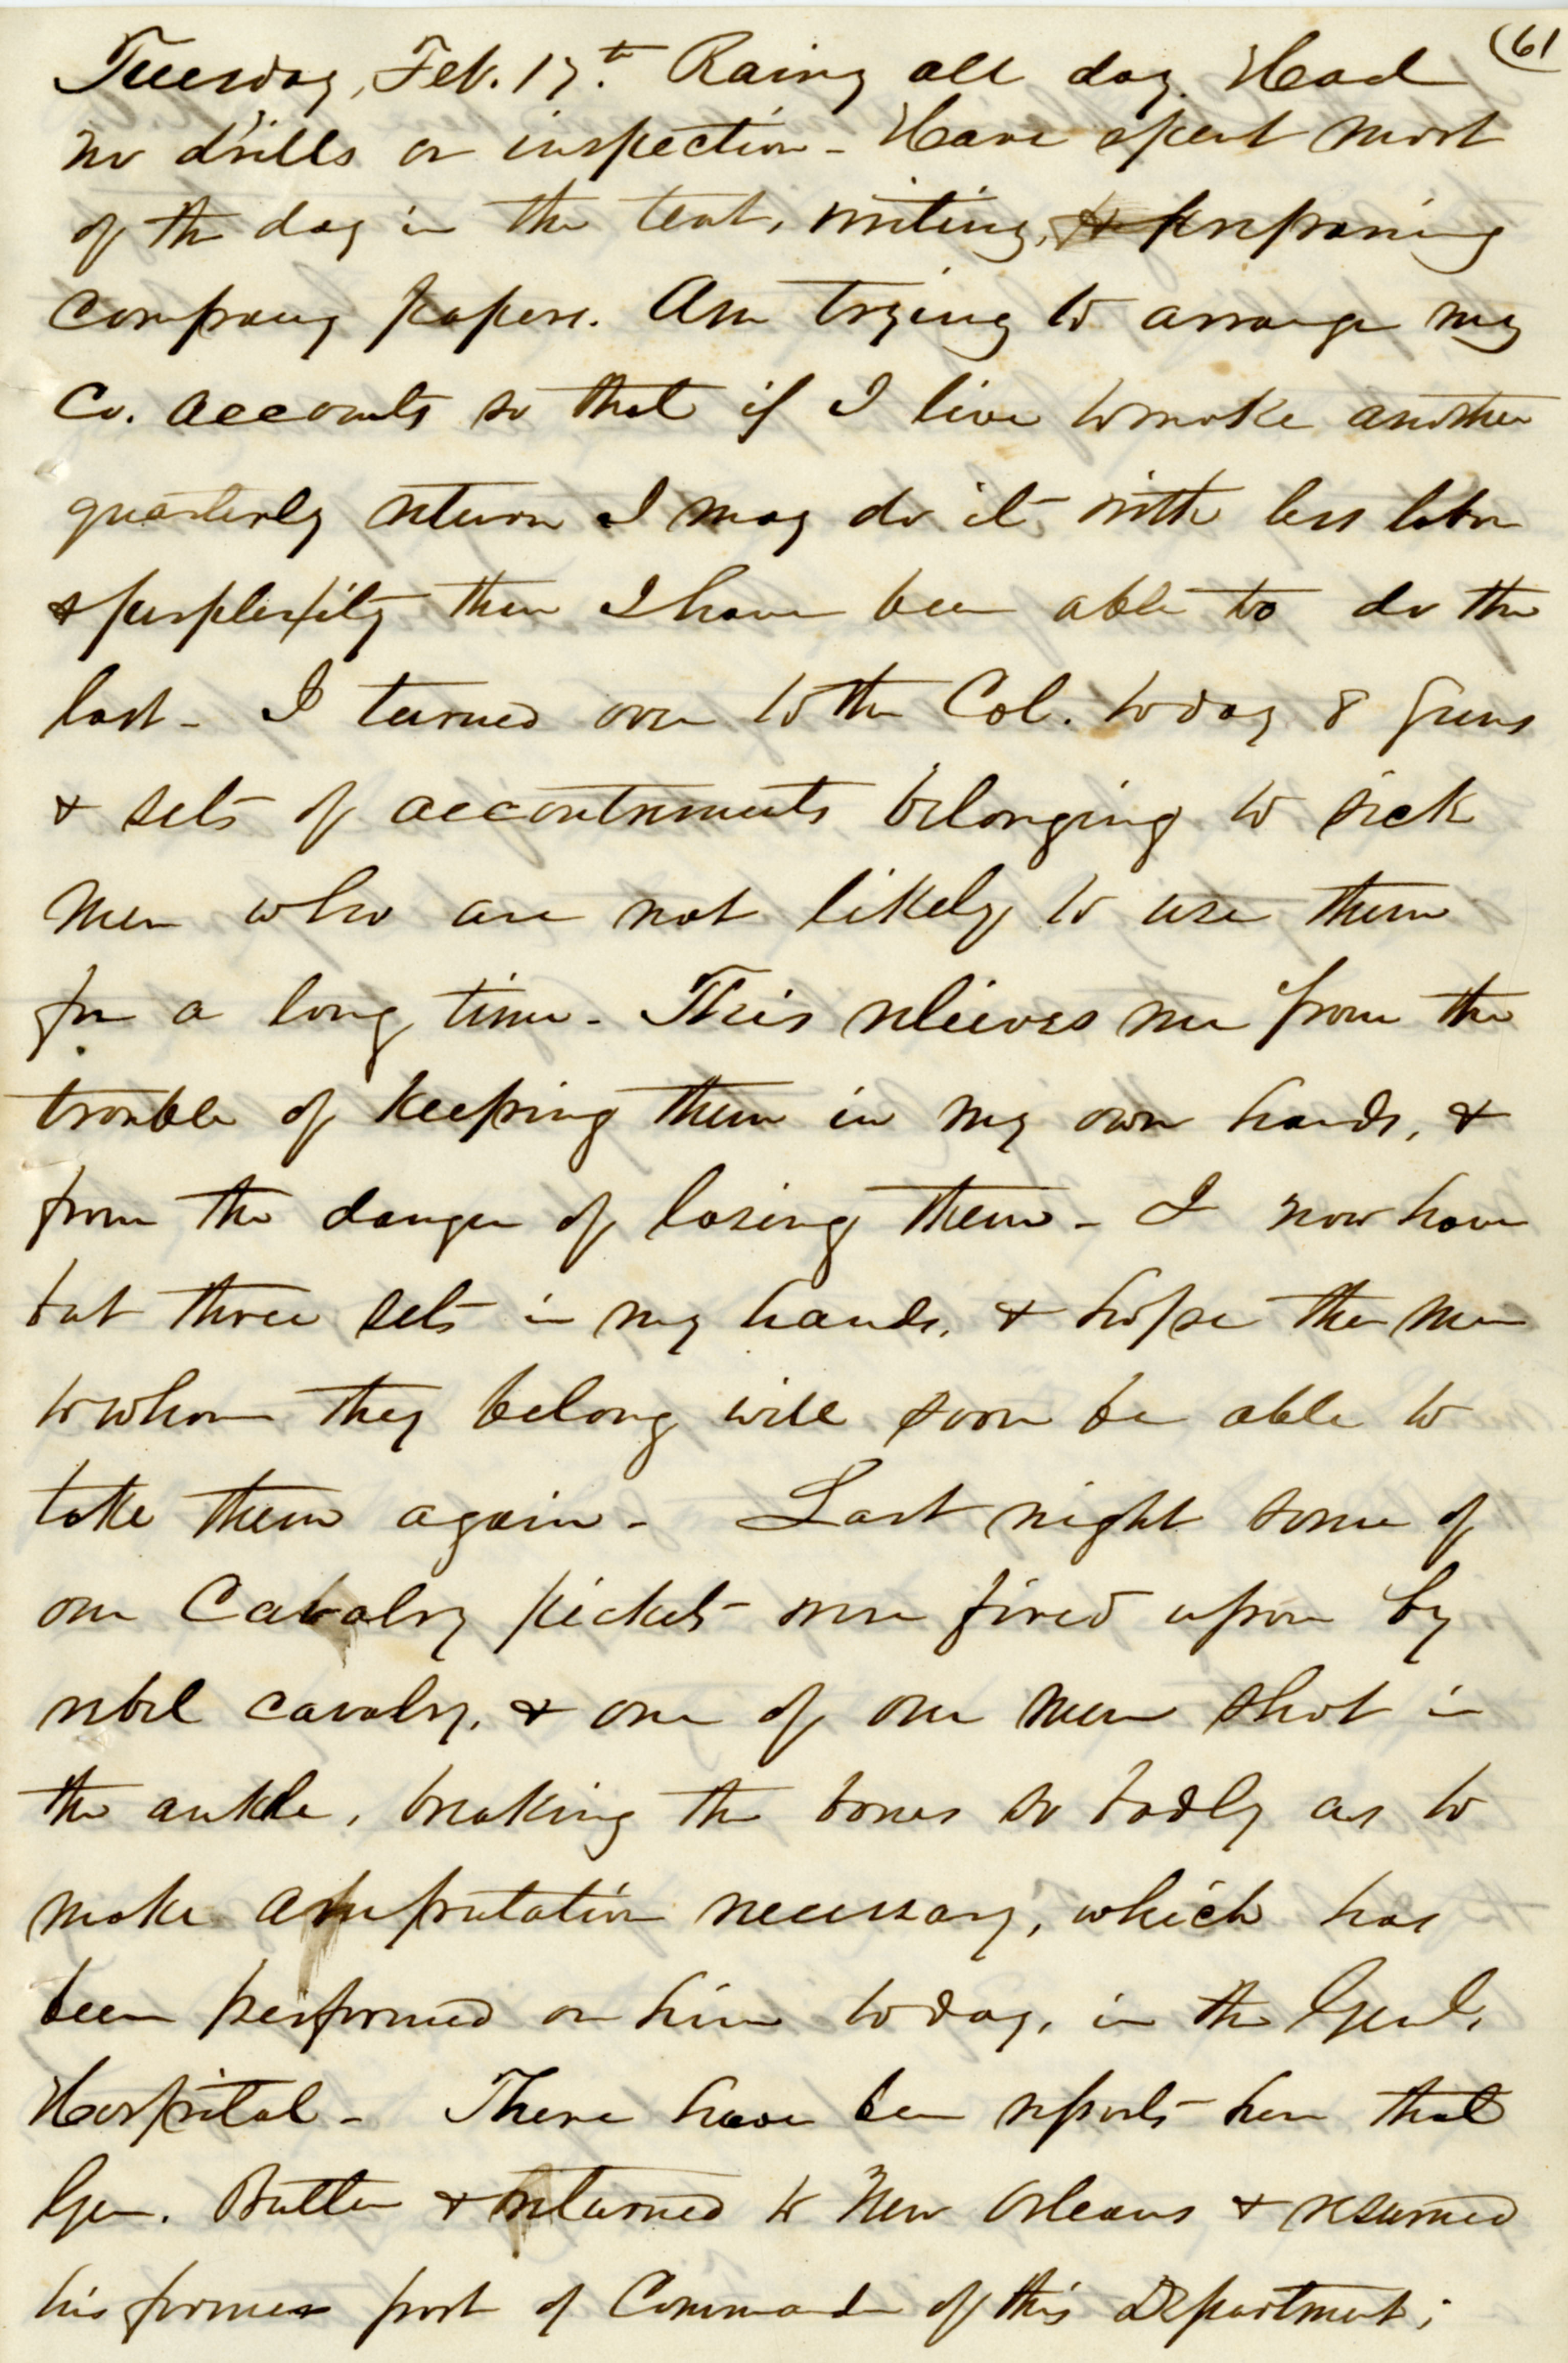 (61
Tuesday, Feb. 17th. Rainy all day. Had
no drills or inspection - Have spent most
of the day in the tent, writing, & preparing
company papers. Am trying to arrange my
Co. accounts so that if I live to make another
quarterly return I may do it with less labor
& perplexity than I have been able to do the
last - I turned over to the Col. today 8 Guns
& sets of accoutrements belonging to sick
men who are not likely to use them
for a long time - This relieves me from the
trouble of keeping them in my own hands, &
from the danger of losing them - I now have
but three sets in my hands, & hope the men
to whom they belong will soon be able to
take them again - Last night some of
our Cavalry pickets were fired upon by
rebel cavalry, & one of our men shot in
the ankle, breaking the bones so badly as to
make amputation necessary, which has
been performed on him today, in the Genl.
Hospital - There have been reports here that
Gen. Butler & returned to New Orleans & resumed
his former post of Commander of this Department;